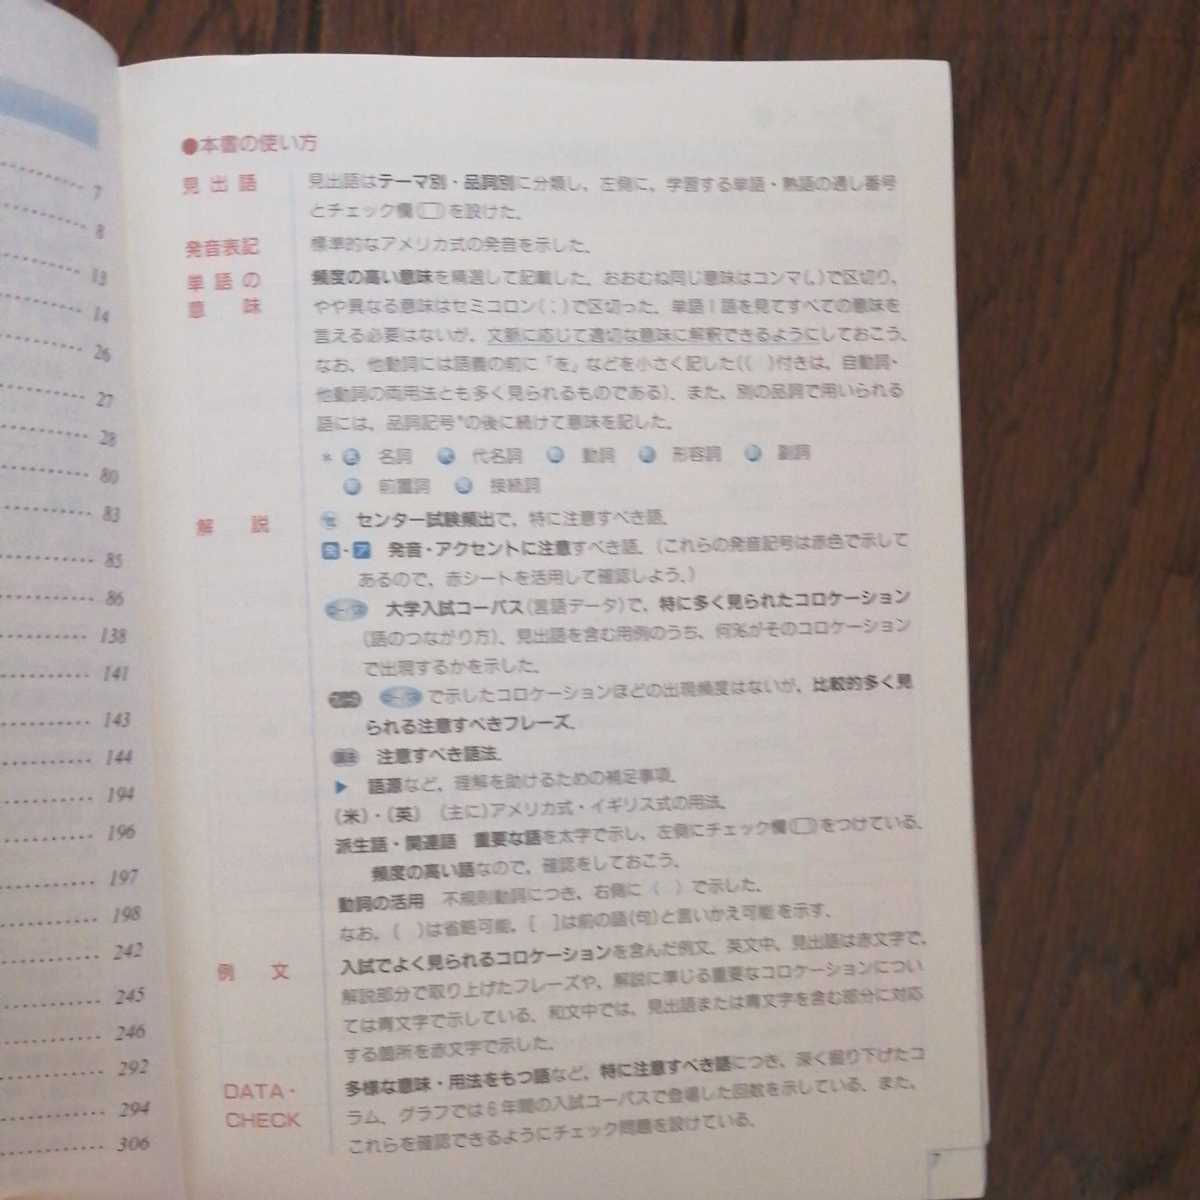 7
8
13
14
26
27
28
80
83
85
86
138
141
143
144
194
196
197
198
242
245
246
292
294
306
●本書の使い方
見出語 見出語はテーマ別・品詞別に分類し，左側に，学習する単語・熟語の通し番号
とチェック欄(□)を設けた．
発音表記 標準的なアメリカ式の発音を示した．
単語の意味 頻度の高い意味を精選して記載した．おおむね同じ意味はコンマ(,)で区切り，
やや異なる意味はセミコロン(;)で区切った．単語1語を見てすべての意味を
言える必要はないが，文脈に応じて適切な意味に解釈できるようにしておこう．
なお，他動詞には語義の前に「を」などを小さく記した(( )付きは，自動詞・
他動詞の両用法とも多く見られるものである)．また，別の品詞で用いられる
語には，品詞記号*の後に続けて意味を記した．
* 名 名詞 代 代名詞 動 動詞 形 形容詞 副 副詞
前 前置詞 接 接続詞
解説 セ センター試験頻出で，特に注意すべき語．
発・ア 発音・アクセントに注意すべき語．(これらの発音記号は赤色で示して
あるので，赤シートを活用して確認しよう．)
コーパス 大学入試コーパス(言語データ)で，特に多く見られたコロケーション
(語のつながり方)．見出語を含む用例のうち，何%がそのコロケーション
で出現するかを示した．
コーパス で示したコロケーションほどの出現頻度はないが，比較的多く見
られる注意すべきフレーズ．
語法 注意すべき語法．
▶ 語源など，理解を助けるための補足事項．
(米)・(英) (主に)アメリカ式・イギリス式の用法．
派生語・関連語 重要な語を太字で示し，左側にチェック欄(□)をつけている．
頻度の高い語なので，確認をしておこう．
動詞の活用 不規則動詞につき，右側に〈 〉で示した．
なお，( )は省略可能，[ ]は前の語(句)と言いかえ可能を示す．
例文 入試でよく見られるコロケーションを含んだ例文．英文中，見出語は赤文字で，
解説部分で取り上げたフレーズや，解説に準じる重要なコロケーションについ
ては青文字で示している．和文中では，見出語または青文字を含む部分に対応
する箇所を赤文字で示した．
DATA・CHECK 多様な意味・用法をもつ語など，特に注意すべき語につき，深く掘り下げたコ
ラム．グラフでは6年間の入試コーパスで登場した回数を示している．また，
これらを確認できるようにチェック問題を設けている．
7